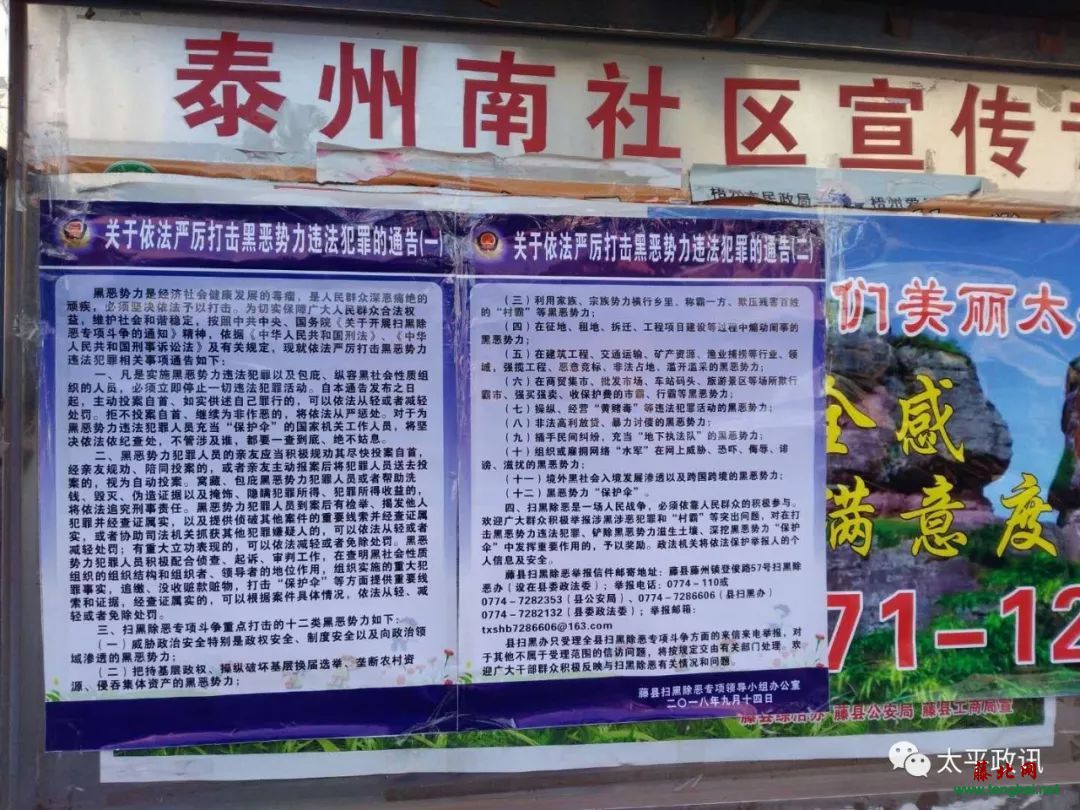 泰州南社区宣传
梧州市民政局
梧州爱
关于依法严厉打击黑恶势力违法犯罪的通告(一)
黑恶势力是经济社会健康发展的毒瘤，是人民群众深恶痛绝的
顽疾，必须坚决依法予以打击。为切实保障广大人民群众合法权
益，维护社会和谐稳定，按照中共中央、国务院《关于开展扫黑除
恶专项斗争的通知》精神，依据《中华人民共和国刑法》、《中华
人民共和国刑事诉讼法》及有关规定，现就依法严厉打击黑恶势力
违法犯罪相关事项通告如下：
一、凡是实施黑恶势力违法犯罪以及包庇、纵容黑社会性质组
织的人员，必须立即停止一切违法犯罪活动。自本通告发布之日
起，主动投案自首、如实供述自己罪行的，可以依法从轻或者减轻
处罚。拒不投案自首、继续为非作恶的，将依法从严惩处。对于为
黑恶势力违法犯罪人员充当“保护伞”的国家机关工作人员，将坚
决依法依纪查处，不管涉及谁，都要一查到底、绝不姑息。
二、黑恶势力犯罪人员的亲友应当积极规劝其尽快投案自首，
经亲友规劝、陪同投案的，或者亲友主动报案后将犯罪人员送去投
案的，视为自动投案。窝藏、包庇黑恶势力犯罪人员或者帮助洗
钱、毁灭、伪造证据以及掩饰、隐瞒犯罪所得、犯罪所得收益的，
将依法追究刑事责任。黑恶势力犯罪人员到案后有检举、揭发他人
犯罪并经查证属实，以及提供侦破其他案件的重要线索并经查证属
实，或者协助司法机关抓获其他犯罪嫌疑人的，可以依法从轻或者
减轻处罚；有重大立功表现的，可以依法减轻或者免除处罚。黑恶
势力犯罪人员积极配合侦查、起诉、审判工作，在查明黑社会性质
组织的组织结构和组织者、领导者的地位作用，组织实施的重大犯
罪事实，追缴、没收赃款赃物，打击“保护伞”等方面提供重要线
索和证据，经查证属实的，可以根据案件具体情况，依法从轻、减
轻或者免除处罚。
三、扫黑除恶专项斗争重点打击的十二类黑恶势力如下：
（一）威胁政治安全特别是政权安全、制度安全以及向政治领
域渗透的黑恶势力；
（二）把持基层政权、操纵破坏基层换届选举、垄断农村资
源、侵吞集体资产的黑恶势力；
关于依法严厉打击黑恶势力违法犯罪的通告(二)
（三）利用家族、宗族势力横行乡里、称霸一方、欺压残害百姓
的“村霸”等黑恶势力；
（四）在征地、租地、拆迁、工程项目建设等过程中煽动闹事的
黑恶势力；
（五）在建筑工程、交通运输、矿产资源、渔业捕捞等行业、领
域，强揽工程、恶意竞标、非法占地、滥开滥采的黑恶势力；
（六）在商贸集市、批发市场、车站码头、旅游景区等场所欺行
霸市、强买强卖、收保护费的市霸、行霸等黑恶势力；
（七）操纵、经营“黄赌毒”等违法犯罪活动的黑恶势力；
（八）非法高利放贷、暴力讨债的黑恶势力；
（九）插手民间纠纷，充当“地下执法队”的黑恶势力；
（十）组织或雇佣网络“水军”在网上威胁、恐吓、侮辱、诽
谤、滋扰的黑恶势力；
（十一）境外黑社会入境发展渗透以及跨国跨境的黑恶势力；
（十二）黑恶势力“保护伞”。
四、扫黑除恶是一场人民战争，必须依靠人民群众的积极参与。
欢迎广大群众积极举报涉黑涉恶犯罪和“村霸”等突出问题，对在打
击黑恶势力违法犯罪、铲除黑恶势力滋生土壤、深挖黑恶势力“保护
伞”中发挥重要作用的，予以奖励。政法机关将依法保护举报人的个
人信息及安全。
藤县扫黑除恶举报信件邮寄地址：藤县藤州镇登俊路57号扫黑除
恶办（设在县委政法委）；举报电话：0774－110或
0774－7282353（县公安局）、0774－7286606（县扫黑办）
0774－7282132（县委政法委）；举报邮箱：
txshb7286606@163.com
县扫黑办只受理全县扫黑除恶专项斗争方面的来信来电举报，对
于其他不属于受理范围的信访问题，将按规定交由有关部门处理。欢
迎广大干部群众积极反映与扫黑除恶有关情况和问题。
藤县扫黑除恶专项领导小组办公室
二〇一八年九月十四日
们美丽太
全感
满意度
71-12
藤县综治办 藤县公安局 藤县工商局宣
太平政讯
藤北网
www.tengbei.net